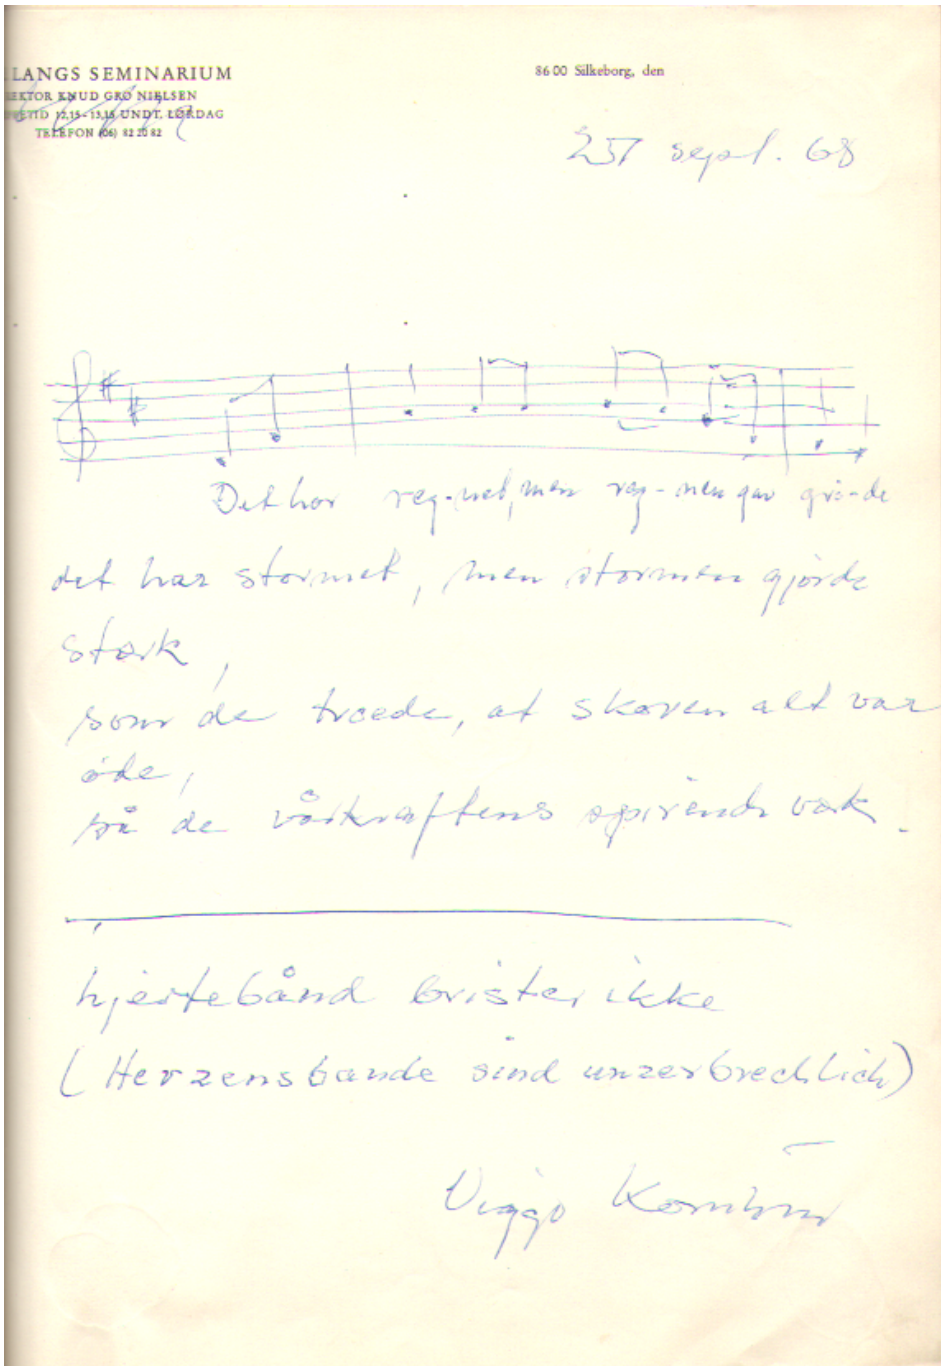 LANGS SEMINARIUM
REKTOR KNUD GRO NIELSEN
12,15 - 13,15 UNDT. LØRDAG
TELEFON (06) 82 20 82
86 00 Silkeborg, den
25 sept. 68
Det har reg-net, men reg-nen gav grø-de
det har stormet, men stormen gjorde
stærk,
som de troede, at skoven alt var
øde,
så de vårkraftens spirende værk.
hjertebånd brister ikke
(Herzensbande sind unzerbrechlich)
Viggo